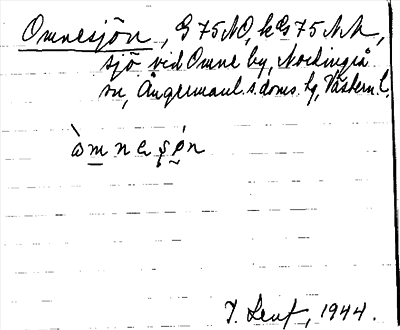 Omnesjön, G 75 NO, kG 75 NN,
sjö vid Omne by, Nordingrå
sn, Ångermanl. s. doms. by, Västern. l.
òmnesǿn
1944.